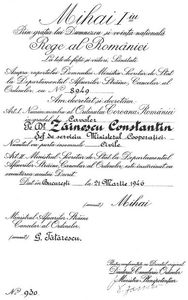 Mihai I iu
Prin grația lui Dumnezeu și voința națională
Rege al României
La toți de față și viitori, Sănătate
Asupra raportului Domnului Ministru Secretar de Stat
la Departamentul Afacerilor Străine, Cancelar al
Ordinelor, cu No 8949
Am decretat și decretăm:
Art. I. Numim membru al Ordinului Coroana României
în gradul de Cavaler
Pe Dl Zăinescu Constantin
Șef de serviciu Ministerul Cooperației
Civile
Art. II. Ministrul Secretar de Stat la Departamentul
Afacerilor Străine, Cancelar al Ordinelor, este însărcinat cu
executarea acestui Decret.
Dat în București la 21 Martie 1946
Mihai
Ministrul Afacerilor Străine
Cancelar al Ordinelor,
G. Tătărescu.
No 930.